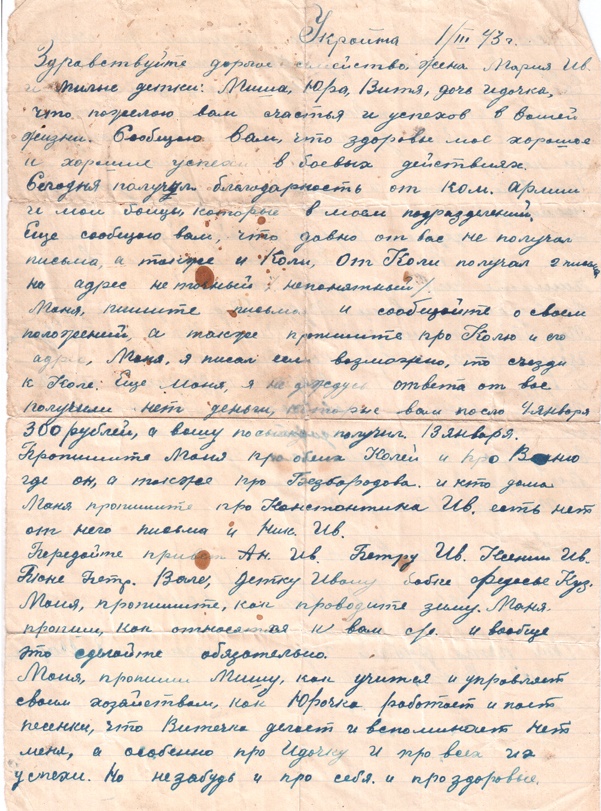 Украйна 1/III 43 г.
Здравствуйте дорогое семейство, жена Мария Ив.
и милые детки: Миша, Юра, Витя, дочь Идочка,
что пожелаю вам счастья и успехов в вашей
жизни. Сообщаю Вам, что здоровье мое хорошое
и хорошие успехи в боевых действиях.
Сегодня получил благодарность от Ком. Армии
и мои бойцы, которые в моем подразделений.
Еще сообщаю вам, что давно от вас не получал
письма, а также и Коли, От Коли получал 2 письма
но адрес не точный / непонятный /.
Маня, пишите письма и сообщайте о своем
положений, а также пропишите про Колю и его
адрес, Маня, я писал если возможно, то съезди
к Коле. Еще Маня, я не дождусь ответа от вас
получили нет деньги, которые вам послал 4 января
300 рублей, а вашу получил 13 января.
Пропишите Маня про обоих Колей и про Ваню
где он, а также про Безбородова. и кто дома
Маня пропишите про Константина Ив. есть нет
от него письма и Ник. Ив.
Передайте привет Ан. Ив. Петру Ив. Ксении Ив.
Петр. Вале, детку Ивану бабке Федосье Куз.
Маня, пропишите, как проводите зиму. Маня.
пропиши, как относятся к вам с/с. и вообще
это сделайте обязательно.
Маня, пропиши Мишу, как учится и управляет
своим хозяйством, как Юрочка работает и поет
песенки, что Витечка делает и вспоминает нет
меня, а особенно про Идочку и про всех их
успехи. Но незабудь и про себя. и про здоровье.